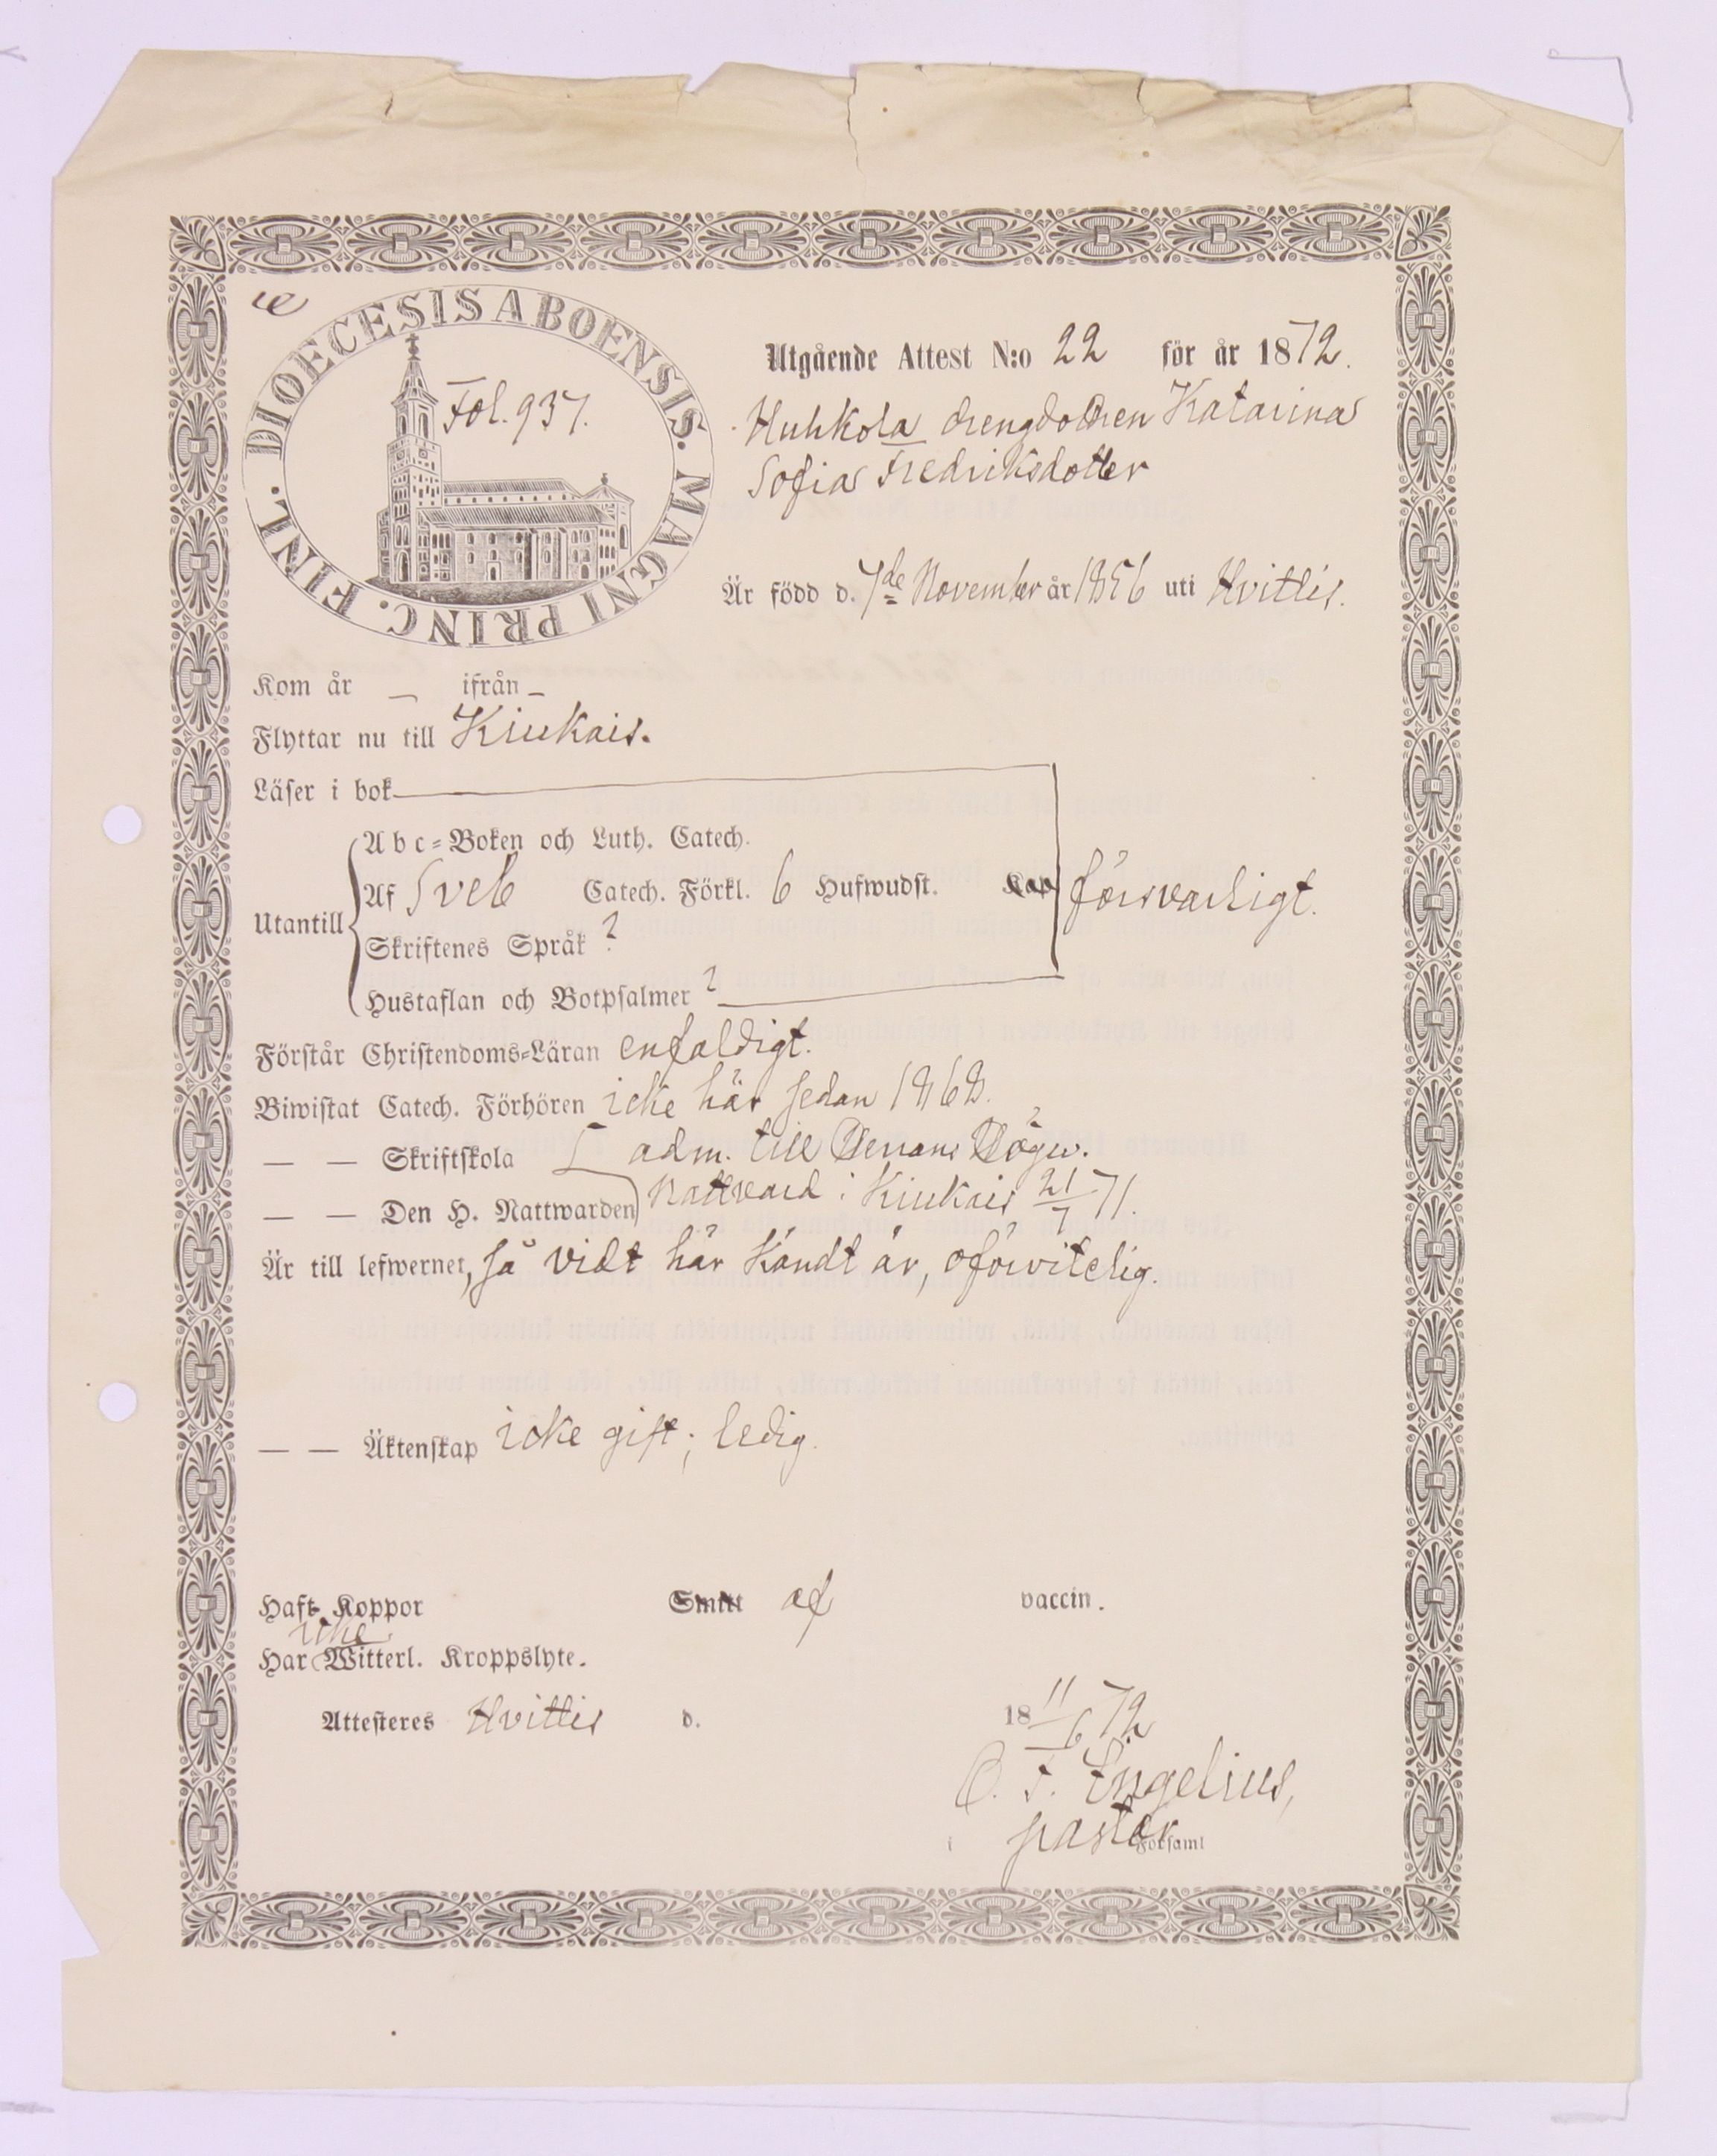 DIOECESIS ABOENSIS. MAGNI PRINC. FINL.
Fol. 937.
Utgående Attest N:o 22 för år 1872.
Huhkola drengdottren Katarina
Sofia Fredriksdotter
Är född d. 7de November år 1856 uti Hvittis.
Kom år — ifrån —
Flyttar nu till Kiukais.
Läser i bok
Abc-Boken och Luth. Catech.
Utantill Af Sveb Catech. Förkl. 6 Hufwudst. Kap försvarligt.
Skriftenes Språk ?
Hustaflan och Botpsalmer ?
Förstår Christendoms-Läran enfaldigt.
Biwistat Catech. Förhören icke här sedan 1868.
— — Skriftskola adm. till Herrans Högw.
— — Den H. Nattwarden Nattvard i Kiukais 21/7 71.
Är till lefwernet, så vidt här kändt är, oförvitelig.
— — Äktenskap icke gift; ledig.
Haft Koppor Smitt af vaccin.
icke
Har Witterl. Kroppslyte.
Attesteres Hvittis d. 18 11/6 72
O. F. Engelius,
pastor
i Församl